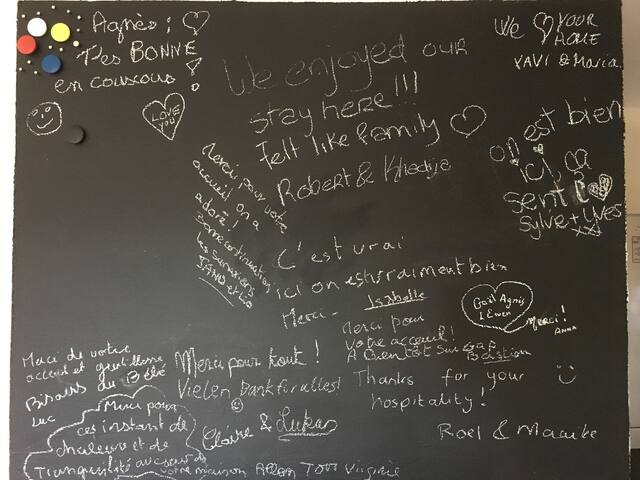 Agnès :
T'es BONNE
en couscous !
LOVE
YOU
We enjoyed our
stay here!!!
Felt like family
Robert & Khadija
We YOUR
HOME
XAVI & Maria
on est bien
ici, ça
sent
Sylve + Yves
xx
Merci pour votre
accueil on a
adoré !
bonne continuation
C'est vrai
ici on est vraiment bien
Merci -
Isabelle
Gaël Agnis
Ewen
Merci!
ANNA
Merci pour
votre accueil!
A Bientôt sur Gap
Bastian
Merci de votre
accueil et gentillesse
Bisous du Bébé
Luc
Merci pour tout !
Vielen Dank für alles!
Claire & Lukas
Thanks for your
hospitality!
Roel & Maaike
Merci pour
ces instant de
chaleure et de
Tranquilité au coeur de
votre maison Allan Tom Virginie